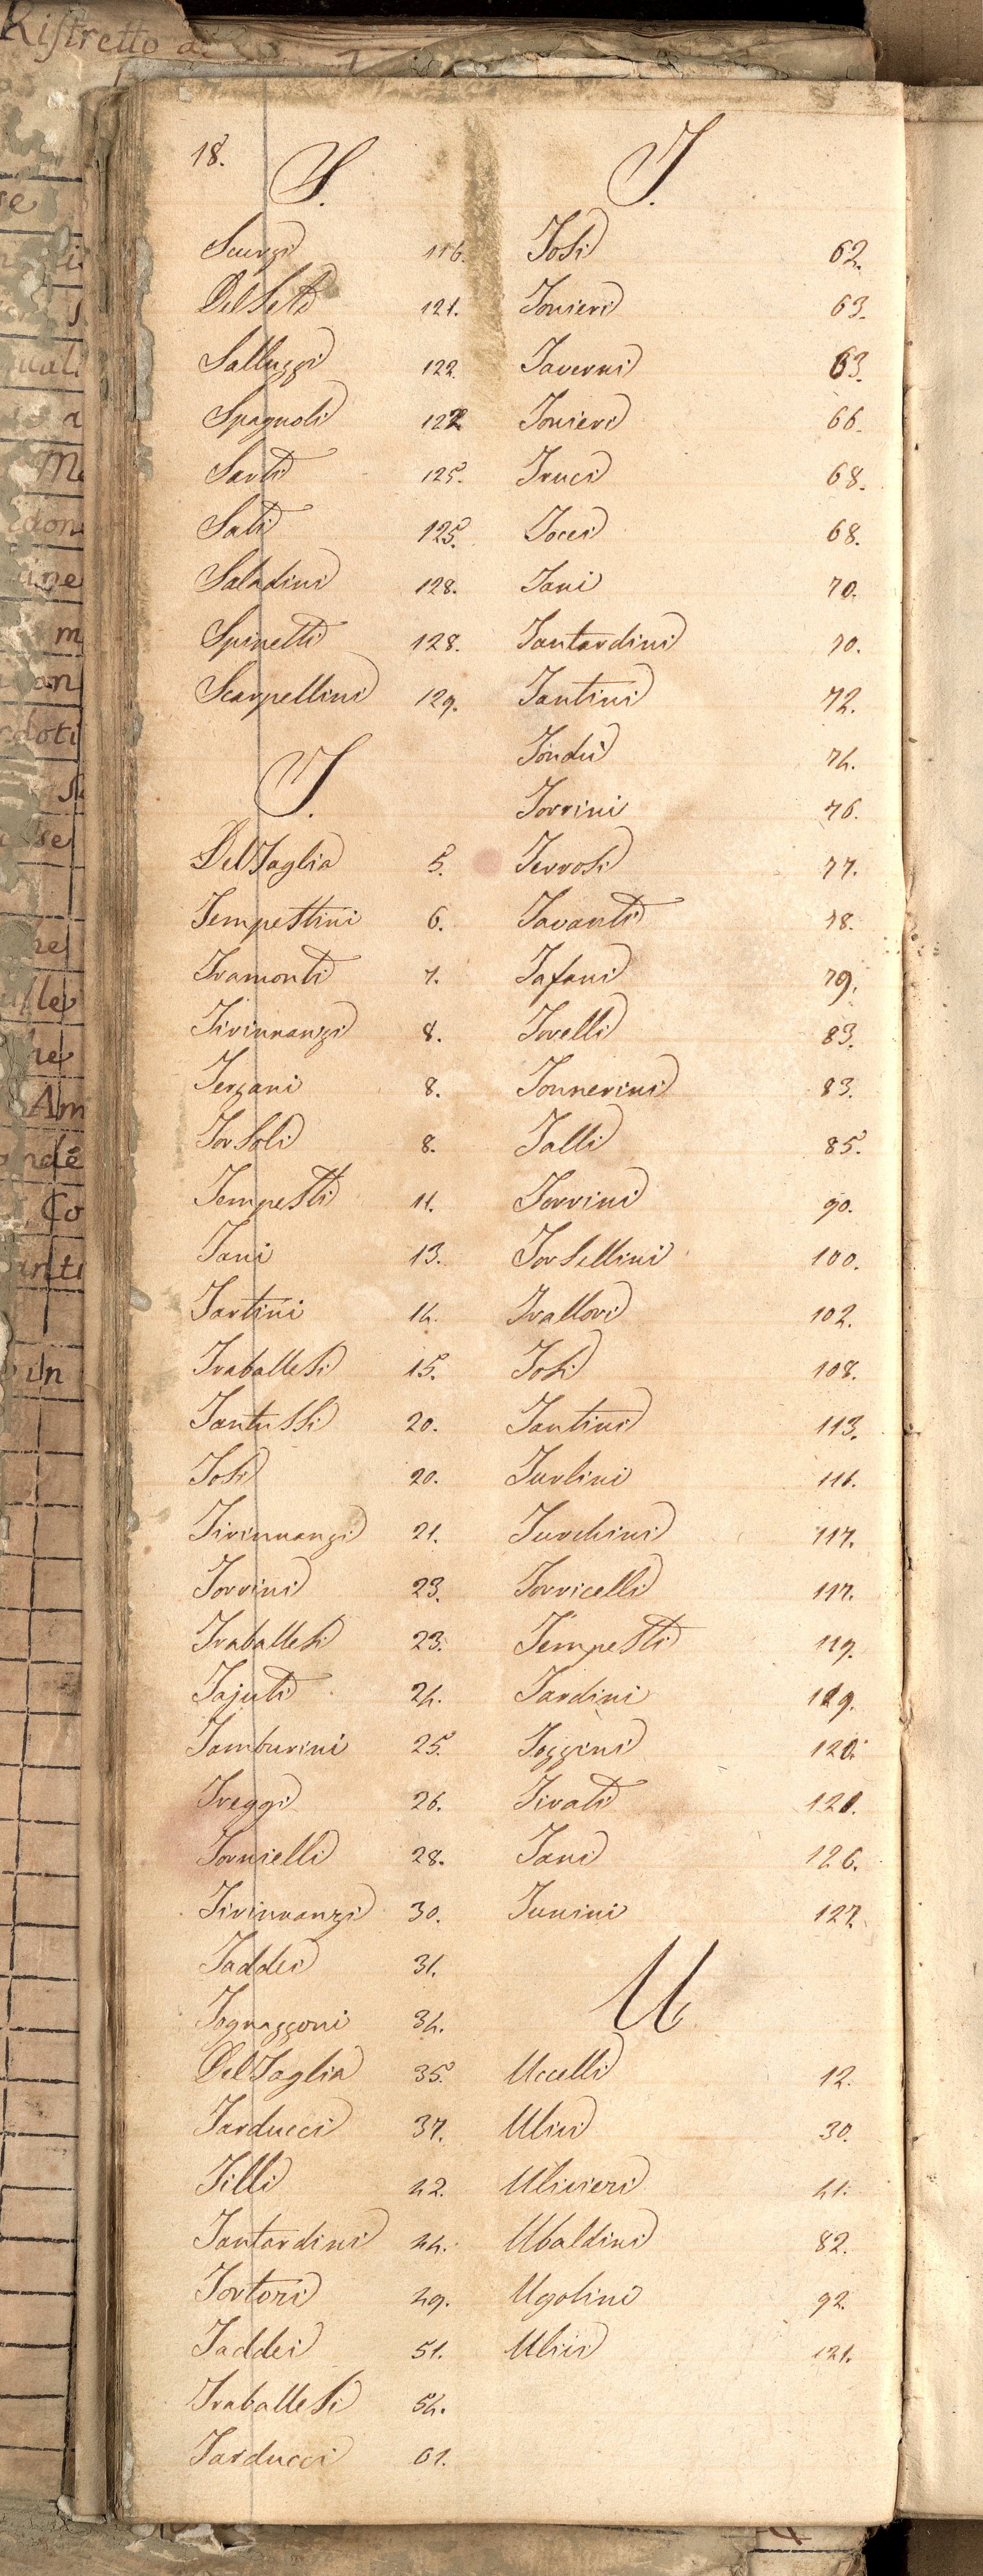 Ristretto
18.
S.
Scurzi 116.
Del Seta 121.
Salluzzi 122.
Spagnoli 122
Santi 125.
Sati 125.
Saladini 128.
Spinetti 128.
Scarpellini 129.
T.
Del Taglia 5.
Tempestini 6.
Tramonti 7.
Tirinnanzi 8.
Terzani 8.
Torsoli 8.
Tempesti 11.
Tani 13.
Tartini 14.
Traballesi 15.
Tantussi 20.
Tosi 20.
Tirinnanzi 21.
Torrini 23.
Traballesi 23.
Tajuti 24.
Tamburini 25.
Treggi 26.
Tornielli 28.
Tirinnanzi 30.
Taddei 31.
Tognazzoni 34.
Del Taglia 35.
Tarducci 37.
Tilli 42.
Tantardini 44.
Tortori 49.
Taddei 51.
Traballesi 54.
Tarducci 61.
T.
Tosi 62.
Tonieri 63.
Taverni 63.
Tonieri 66.
Truci 68.
Tocci 68.
Tani 70.
Tantardini 70.
Tantini 72.
Tondu 74.
Torrini 76.
Terrosi 77.
Tavanti 78.
Tafani 79.
Torelli 83.
Tonnerini 83.
Talli 85.
Torrini 90.
Torsellini 100.
Trallori 102.
Tosi 108.
Tantini 113.
Turlini 116.
Turchini 117.
Torricelli 117.
Tempesti 119.
Tardini 119.
Tozzini 120.
Tirati 120.
Tani 126.
Tunini 127.
U
Uccelli 12.
Ulivi 30.
Ulivieri 41.
Ubaldini 82.
Ugolini 92.
Ulivi 121.